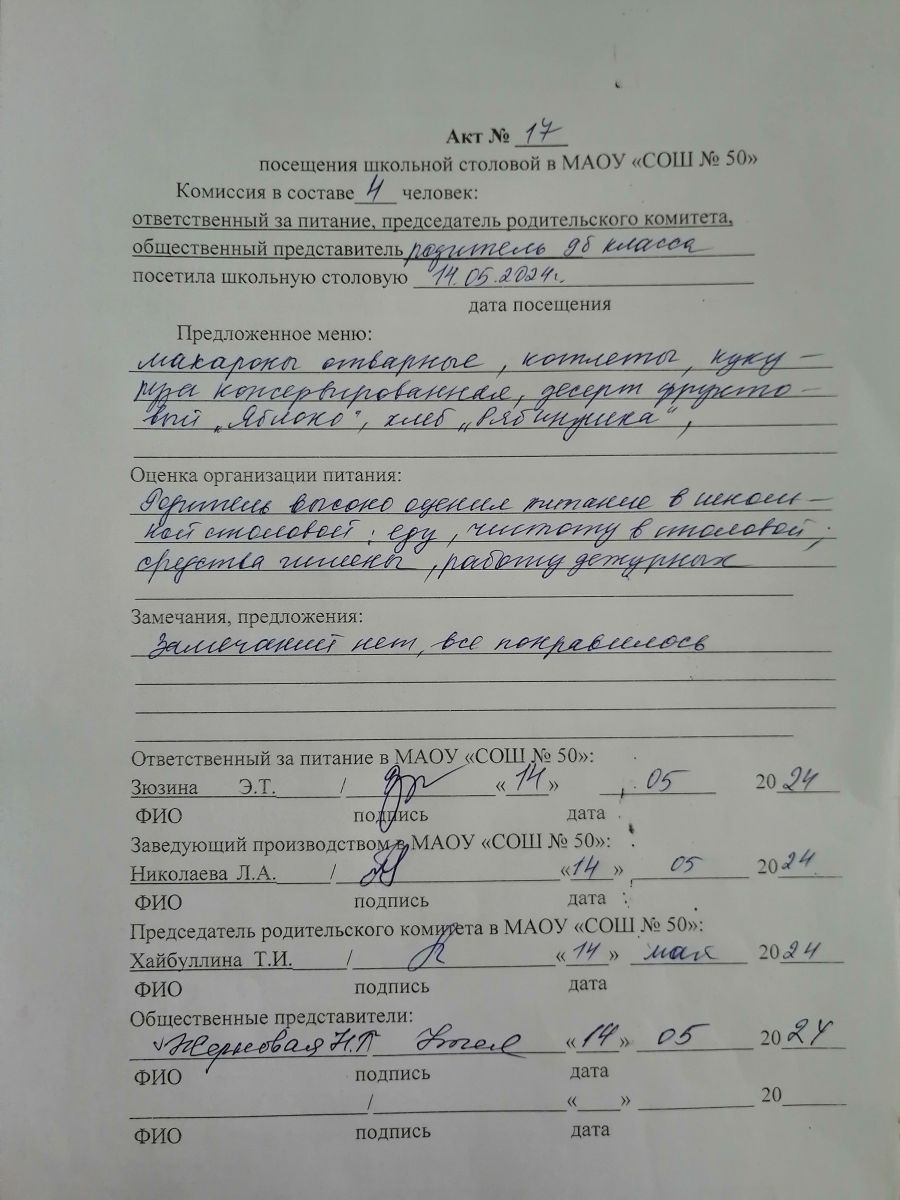 Акт № 17
посещения школьной столовой в МАОУ «СОШ № 50»
Комиссия в составе 4 человек:
ответственный за питание, председатель родительского комитета,
общественный представитель родитель 9б класса
посетила школьную столовую 14.05.2024г.
дата посещения
Предложенное меню:
макароны отварные, котлеты, куку-
руза консервированная, десерт фрукто-
вый „Яблоко", хлеб „Рябинушка",
Оценка организации питания:
Родитель высоко оценил питание в школь-
ной столовой: еду, чистоту в столовой,
средства гигиены, работу дежурных
Замечания, предложения:
Замечаний нет, все понравилось
Ответственный за питание в МАОУ «СОШ № 50»:
Зюзина Э.Т. / «14» 05 2024
ФИО подпись дата
Заведующий производством в МАОУ «СОШ № 50»:
Николаева Л.А. / «14» 05 2024
ФИО подпись дата
Председатель родительского комитета в МАОУ «СОШ № 50»:
Хайбуллина Т.И. / «14» мая 2024
ФИО подпись дата
Общественные представители:
Жерновая Н.П «14» 05 2024
ФИО подпись дата
/ « » 20
ФИО подпись дата